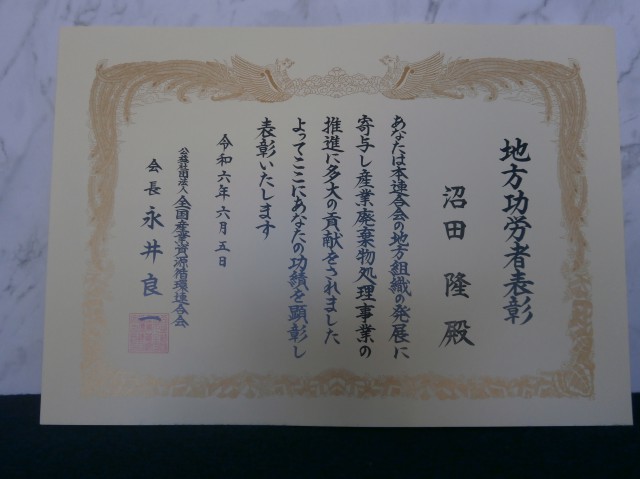 地方功労者表彰
沼田隆殿
あなたは本連合会の地方組織の発展に
寄与し産業廃棄物処理事業の
推進に多大の貢献をされました
よってここにあなたの功績を顕彰し
表彰いたします
令和六年六月五日
公益社団法人全国産業資源循環連合会
会長永井良一